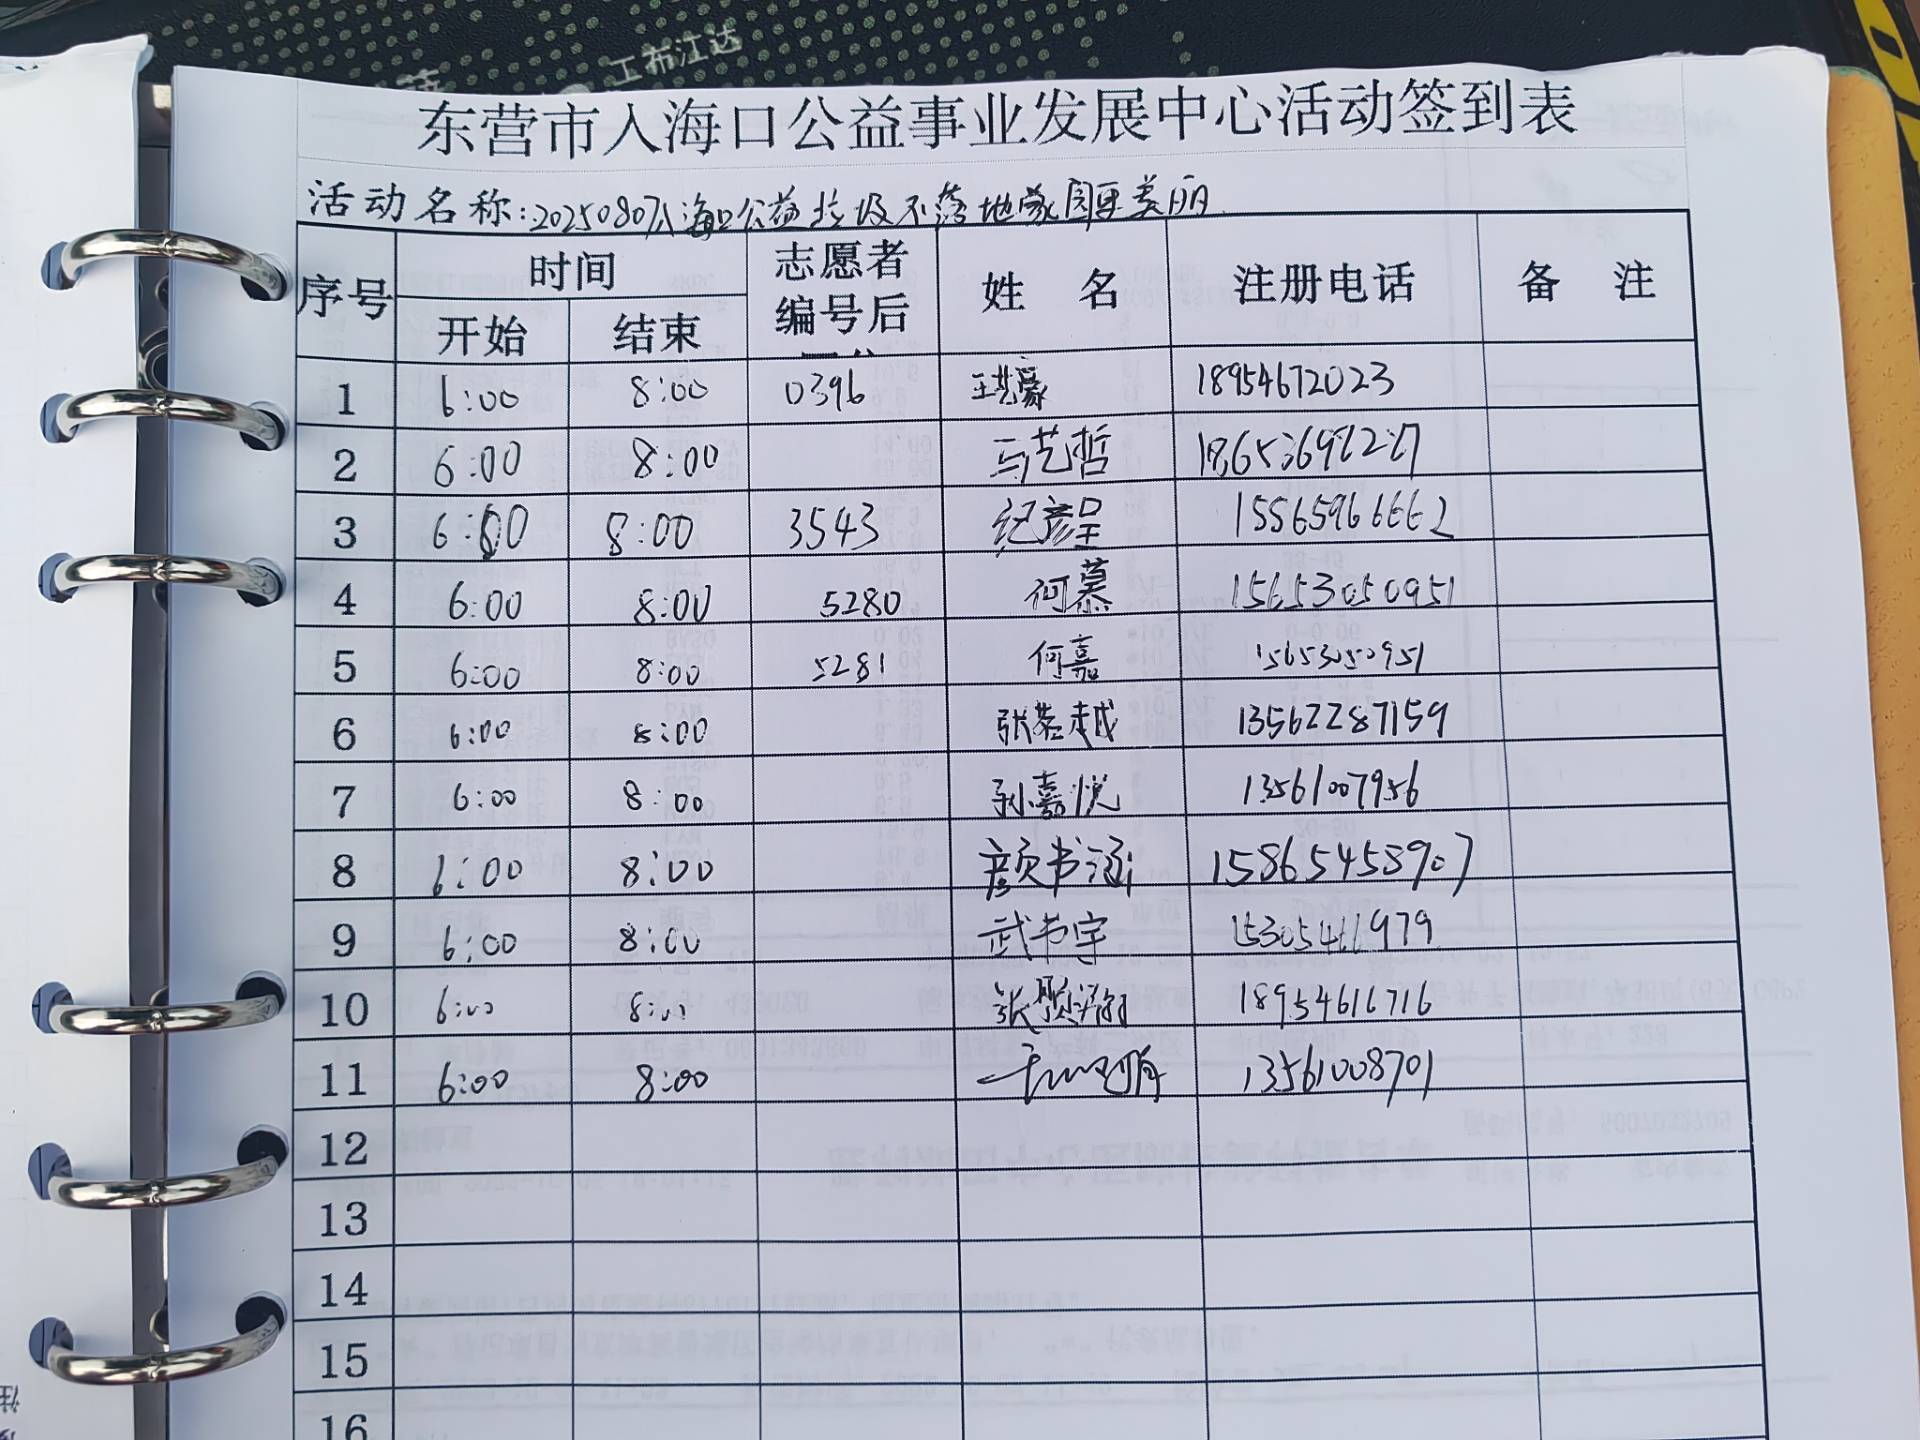 工布江达
东营市入海口公益事业发展中心活动签到表
活动名称:20250807入海口公益垃圾不落地家园更美丽
序号 时间 志愿者编号后 姓 名 注册电话 备 注
开始 结束
1 6:00 8:00 0396 18954672023
2 6:00 8:00 马艺哲
3 6:00 8:00 3543 纪彦呈 15565966662
4 6:00 8:00 5280 何慕 15653050951
5 6:00 8:00 5281 何嘉 15653050951
6 6:00 8:00 张若越 13562287159
7 6:00 8:00 孙嘉悦 13561007956
8 6:00 8:00 颜书涵 15865453907
9 6:00 8:00 武书宇 15305461979
10 6:00 8:00 18954616716
11 6:00 8:00 13561008701
12
13
14
15
16